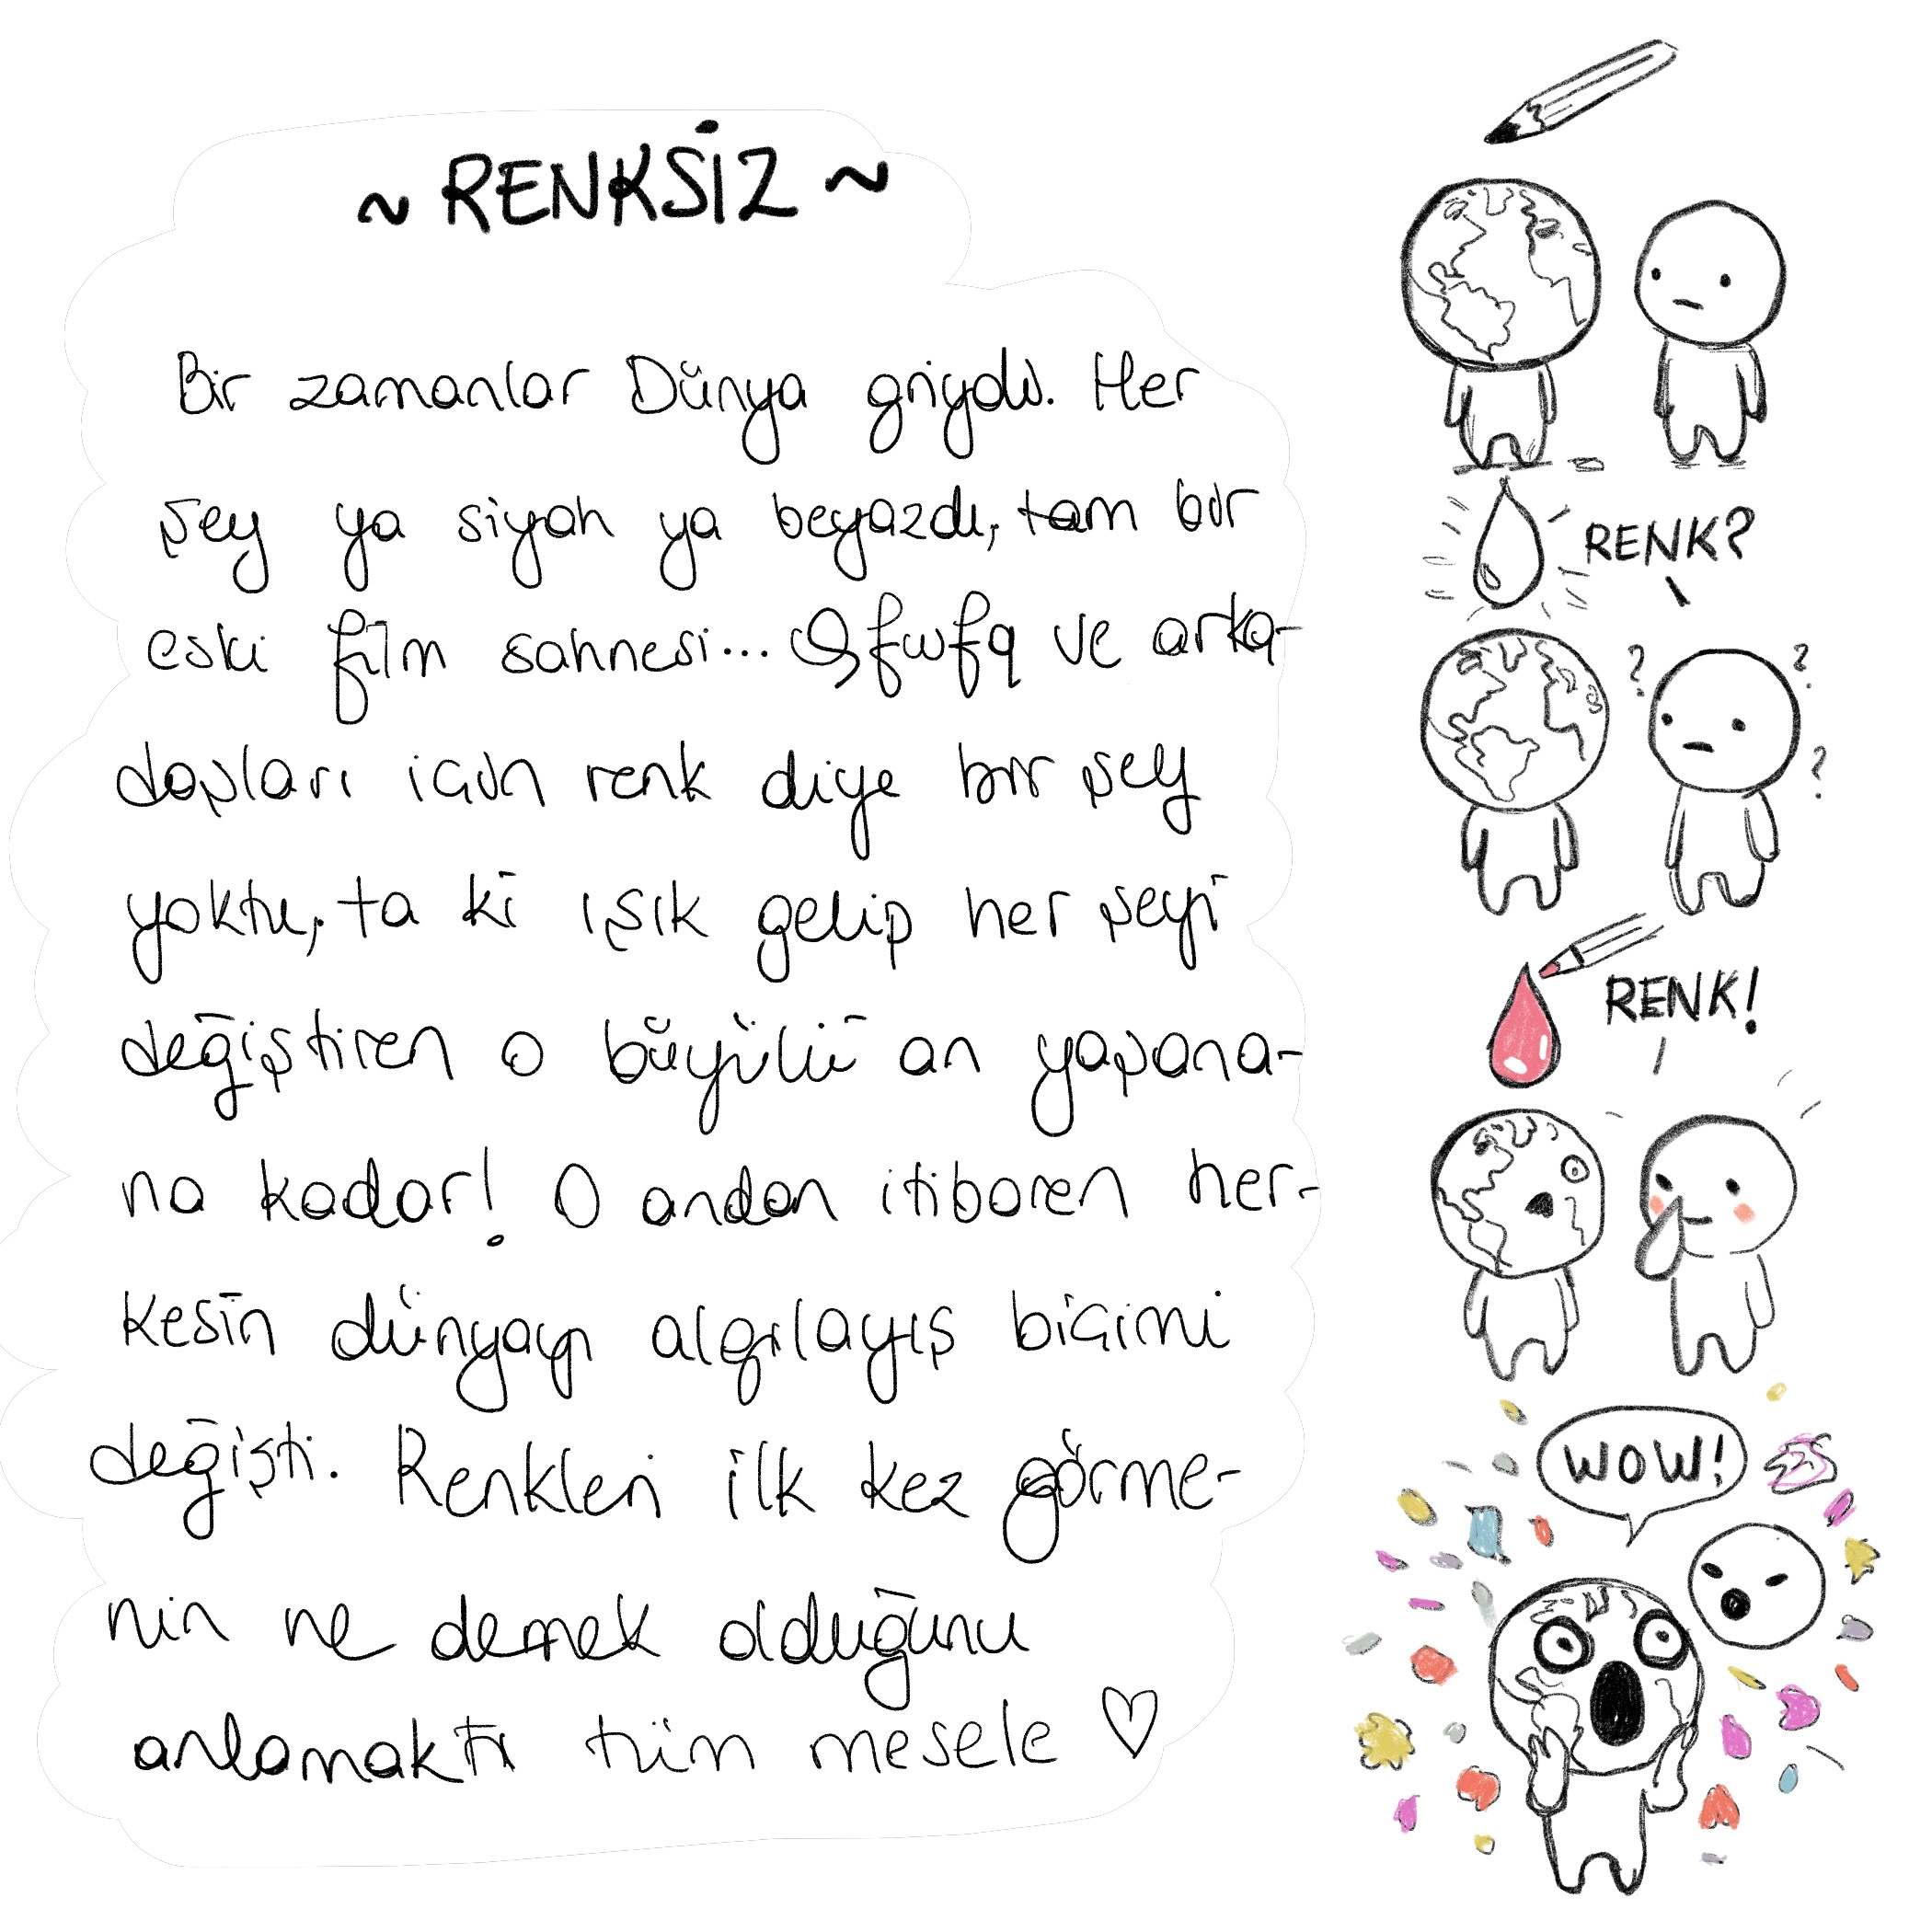 ~ RENKSİZ ~
Bir zamanlar Dünya griydi. Her
şey ya siyah ya beyazdı, tam bir
eski film sahnesi... ve arka-
daşları için renk diye bir şey
yoktu, ta ki ışık gelip her şeyi
değiştiren o büyülü an yaşana-
na kadar! O andan itibaren her-
kesin dünyayı algılayış biçimi
değişti. Renkleri ilk kez görme-
nin ne demek olduğunu
anlamaktı tüm mesele ♡
RENK?
RENK!
WOW!